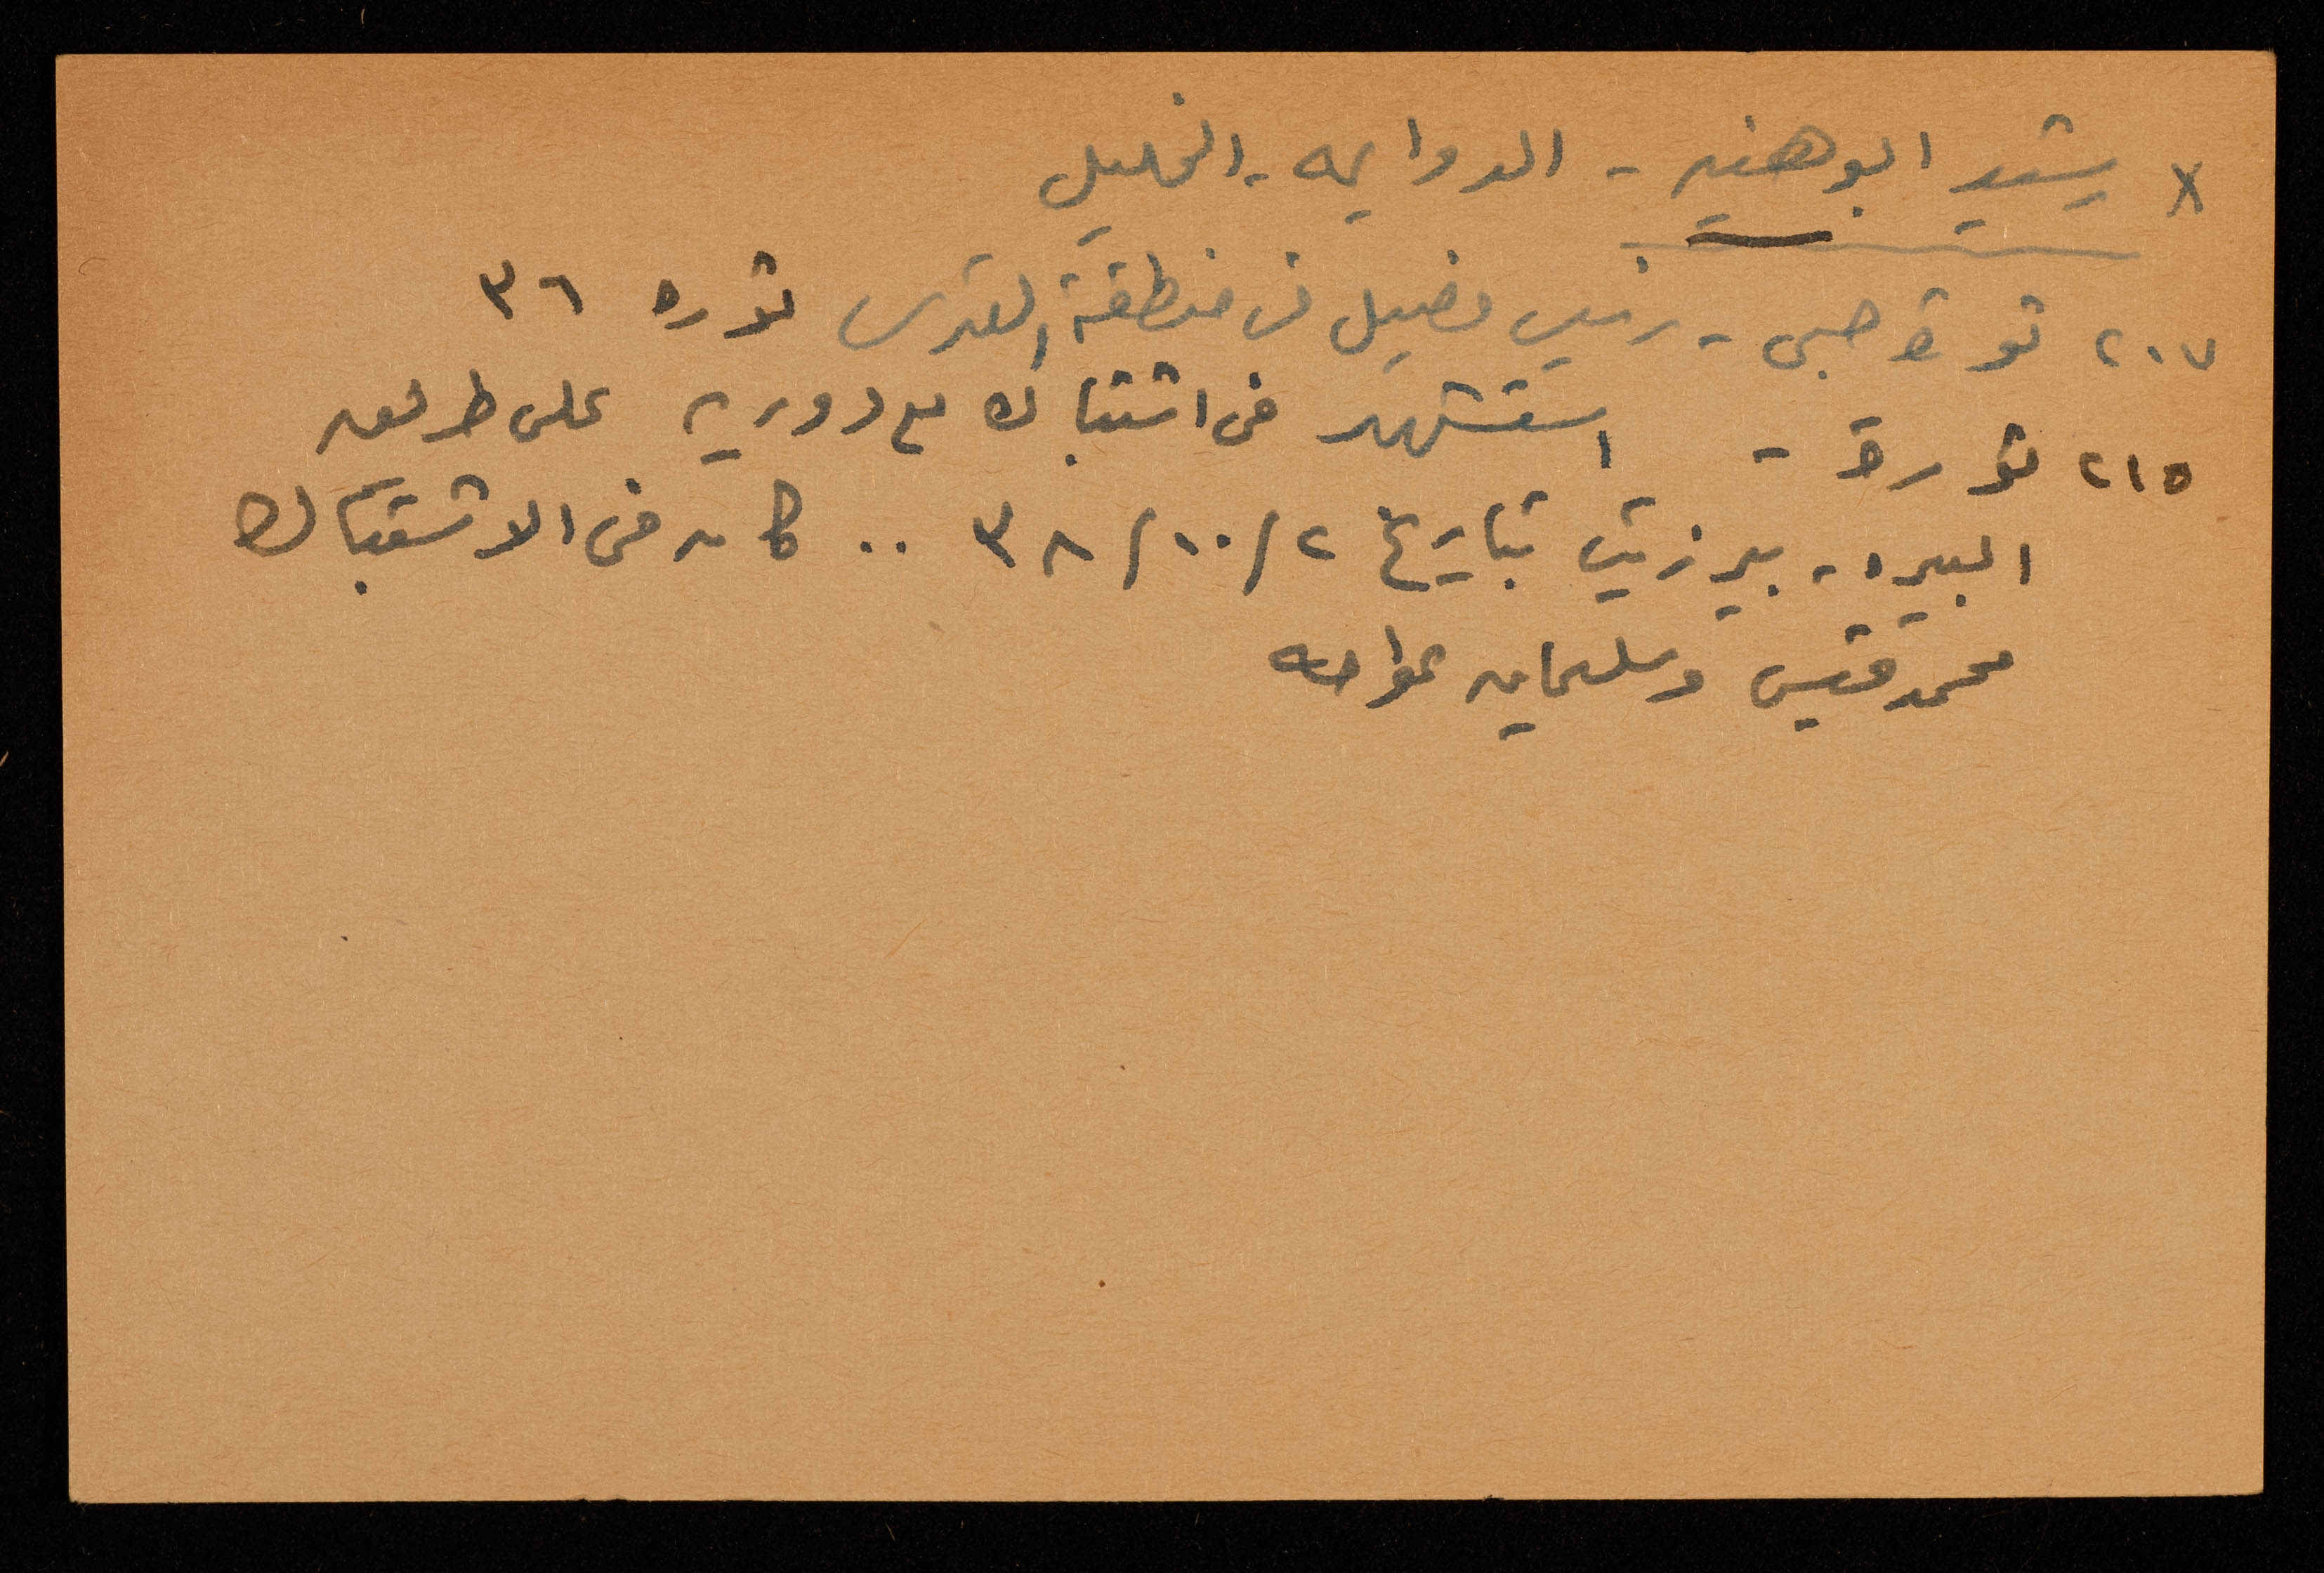 x رشيد ابو هنيه - الدوايمه - الخليل
٢٠٧ ثورة صبحي - رئيس فصيل في منطقة القدس ثوره ٣٦
٢١٥ ثورة - استشهد في اشتباك مع دوريه على طريق
البيره - بير زيت بتاريخ ٢/١٠/٣٨ .. كان في الاشتباك
محمد قيس وسليمان عواجه